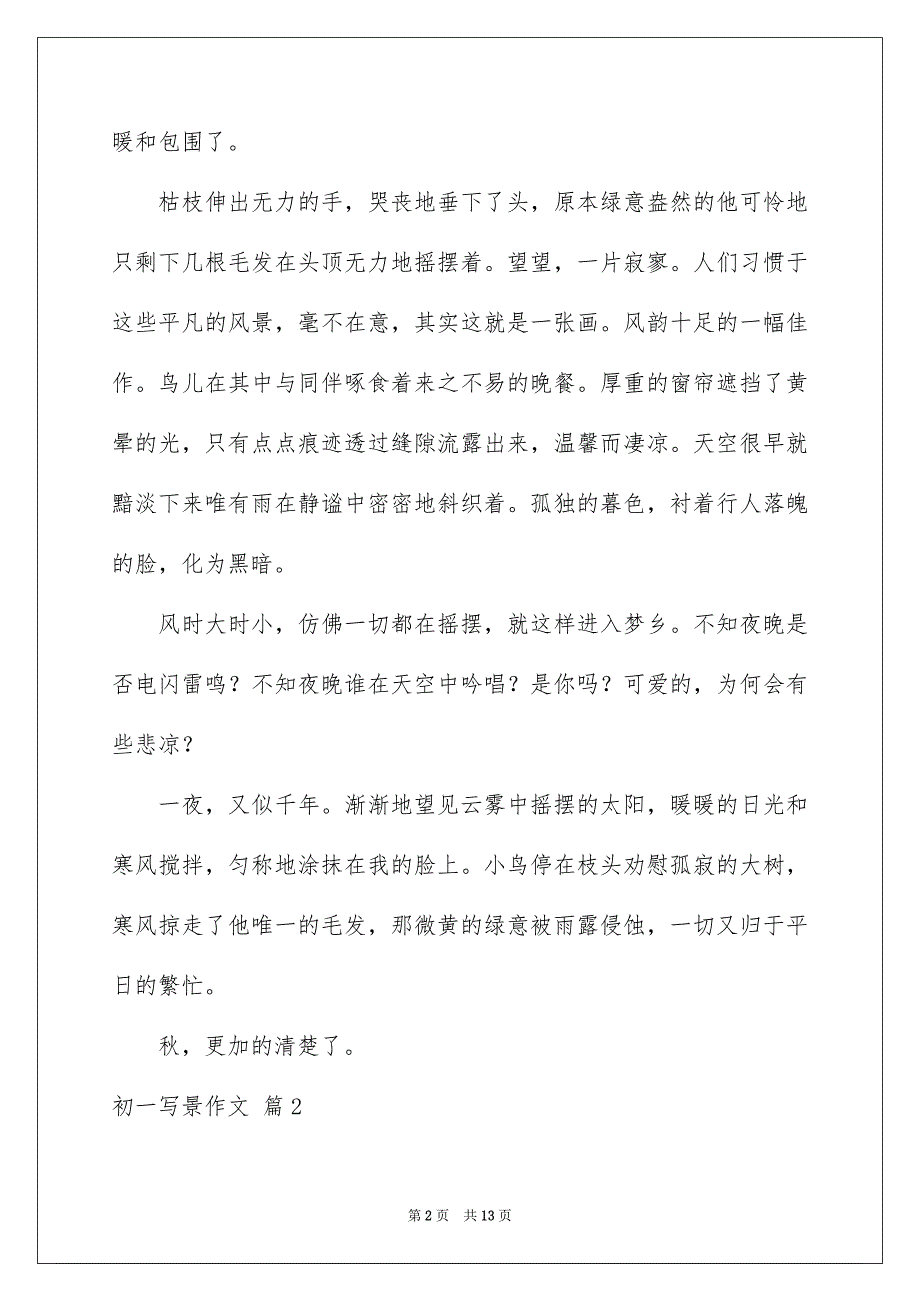 暖和包围了。
枯枝伸出无力的手，哭丧地垂下了头，原本绿意盎然的他可怜地
只剩下几根毛发在头顶无力地摇摆着。望望，一片寂寥。人们习惯于
这些平凡的风景，毫不在意，其实这就是一张画。风韵十足的一幅佳
作。鸟儿在其中与同伴啄食着来之不易的晚餐。厚重的窗帘遮挡了黄
晕的光，只有点点痕迹透过缝隙流露出来，温馨而凄凉。天空很早就
黯淡下来唯有雨在静谧中密密地斜织着。孤独的暮色，衬着行人落魄
的脸，化为黑暗。
风时大时小，仿佛一切都在摇摆，就这样进入梦乡。不知夜晚是
否电闪雷鸣？不知夜晚谁在天空中吟唱？是你吗？可爱的，为何会有
些悲凉？
一夜，又似千年。渐渐地望见云雾中摇摆的太阳，暖暖的日光和
寒风搅拌，匀称地涂抹在我的脸上。小鸟停在枝头劝慰孤寂的大树，
寒风掠走了他唯一的毛发，那微黄的绿意被雨露侵蚀，一切又归于平
日的繁忙。
秋，更加的清楚了。
初一写景作文 篇2
第 2 页 共 13 页